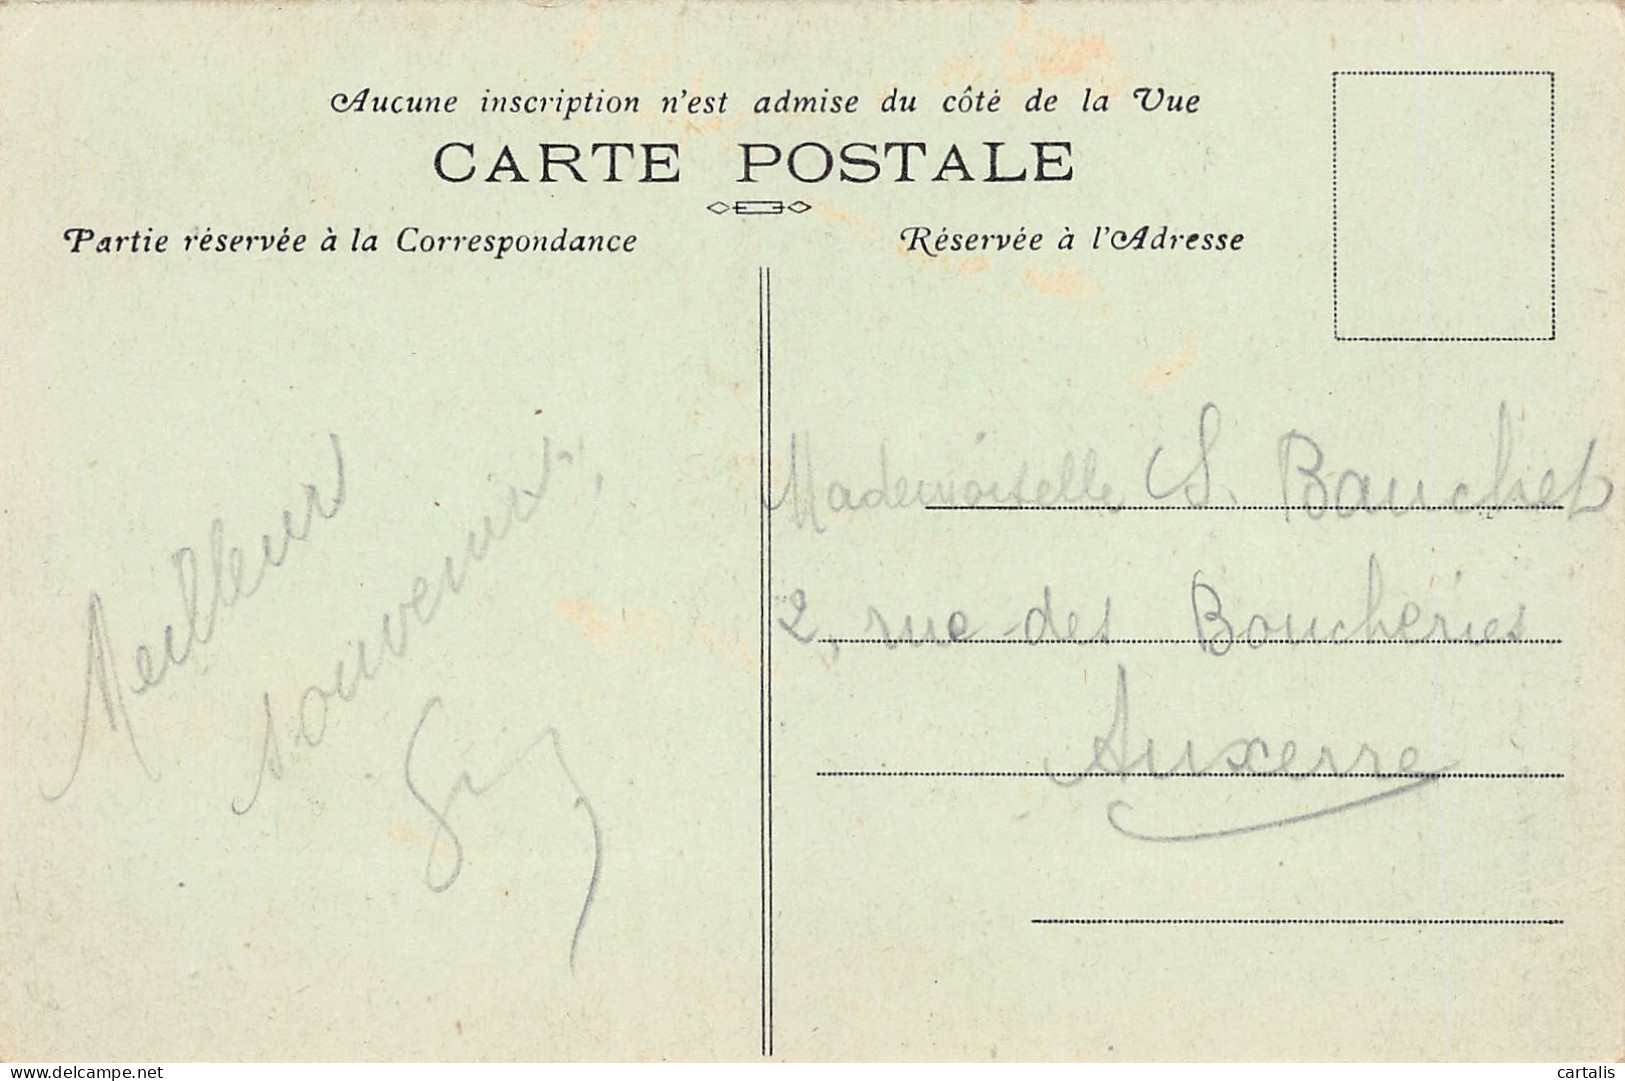 Aucune inscription n'est admise du côté de la Vue
CARTE POSTALE
Partie réservée à la Correspondance
Réservée à l'Adresse
Meilleurs
souvenirs,
Mademoiselle S. Bauchet
2, rue des Boucheries
Auxerre
www.delcampe.net
cartalis